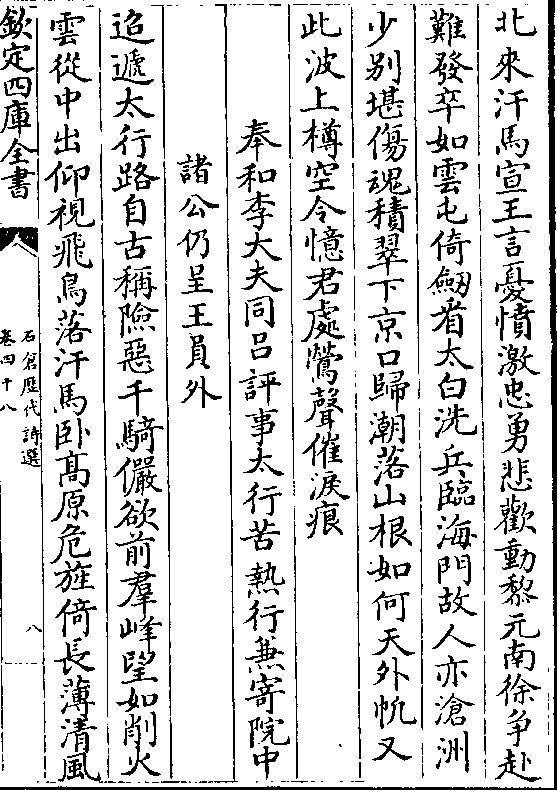 北來汗馬宣王言憂憤激忠勇悲歡動黎元南徐争赴
難發卒如雲屯倚劒看太白洗兵臨海門故人亦滄洲
少别堪傷魂積翠下京口歸潮落山根如何天外帆又
此波上樽空令憶君處鶯聲催淚痕
奉和李大夫同吕評事太行苦熱行兼寄院中
諸公仍呈王員外
迢遞太行路自古稱險惡千騎儼欲前羣峰望如削火
雲從中出仰視飛鳥落汗馬卧高原危旌倚長薄清風
欽定四庫全書
石倉歴代詩選
卷四十八
八